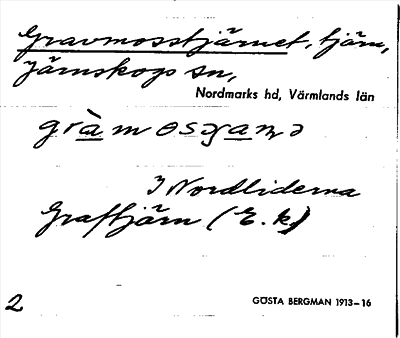 Gravmosstjärnet, tjärn,
Järnskogs sn,
Nordmarks hd, Värmlands län
I Nordliderna
Graftjärn (E. k)
2
GÖSTA BERGMAN 1913–16